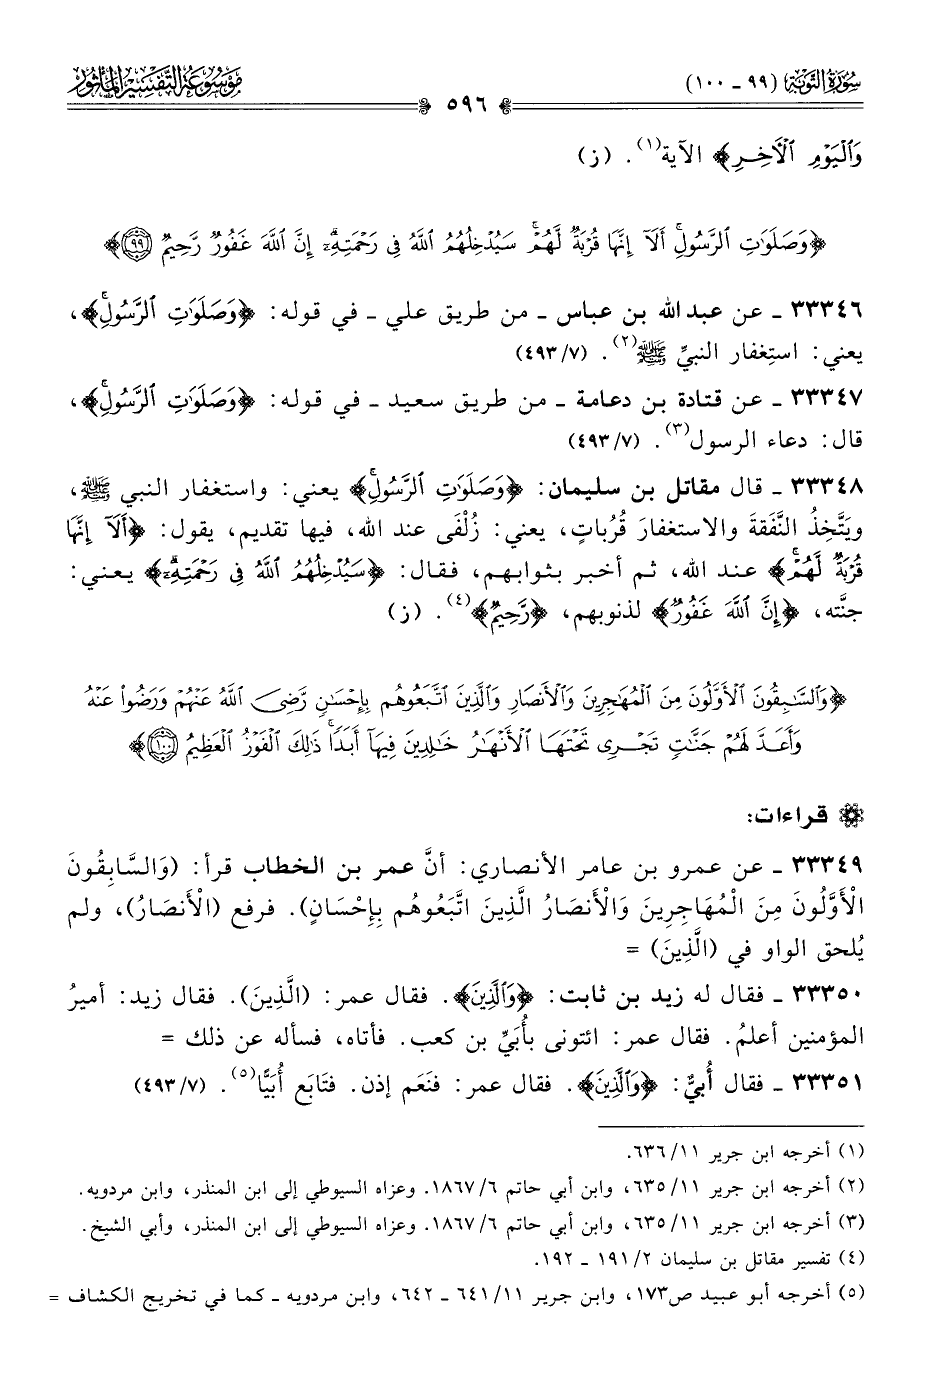 سُورَةُ التَّوْبَة (٩٩ ـ ١٠٠)
٥٩٦
مَوْسُوعَةُ التَّفْسِيرِ المَأْثُورِ
وَٱلْيَوْمِ ٱلْأَخِرِ﴾ الآية(١). (ز)
﴿وَصَلَوَٰتِ ٱلرَّسُولِۚ أَلَآ إِنَّهَا قُرْبَةٌ لَّهُمْۚ سَيُدْخِلُهُمُ ٱللَّهُ فِى رَحْمَتِهِۦٓۗ إِنَّ ٱللَّهَ غَفُورٌ رَّحِيمٌ ٩٩﴾
٣٣٣٤٦ ـ عن عبد الله بن عباس ـ من طريق علي ـ في قوله: ﴿وَصَلَوَٰتِ ٱلرَّسُولِۚ﴾،
يعني: استِغفار النبيِّ ﷺ(٢). (٤٩٣/٧)
٣٣٣٤٧ ـ عن قتادة بن دعامة ـ من طريق سعيد ـ في قوله: ﴿وَصَلَوَٰتِ ٱلرَّسُولِۚ﴾،
قال: دعاء الرسول(٣). (٤٩٣/٧)
٣٣٣٤٨ ـ قال مقاتل بن سليمان: ﴿وَصَلَوَٰتِ ٱلرَّسُولِۚ﴾ يعني: واستغفار النبي ﷺ،
ويَتَّخِذُ النَّفَقةَ والاستغفارَ قُرُباتٍ، يعني: زُلْفَى عند الله، فيها تقديم، يقول: ﴿أَلَآ إِنَّهَا
قُرْبَةٌ لَّهُمْۚ﴾ عند الله، ثم أخبر بثوابهم، فقال: ﴿سَيُدْخِلُهُمُ ٱللَّهُ فِى رَحْمَتِهِۦٓۗ﴾ يعني:
جنَّته، ﴿إِنَّ ٱللَّهَ غَفُورٌ﴾ لذنوبهم، ﴿رَّحِيمٌ﴾(٤). (ز)
﴿وَٱلسَّٰبِقُونَ ٱلْأَوَّلُونَ مِنَ ٱلْمُهَٰجِرِينَ وَٱلْأَنصَارِ وَٱلَّذِينَ ٱتَّبَعُوهُم بِإِحْسَٰنٍ رَّضِىَ ٱللَّهُ عَنْهُمْ وَرَضُوا۟ عَنْهُ
وَأَعَدَّ لَهُمْ جَنَّٰتٍ تَجْرِى تَحْتَهَا ٱلْأَنْهَٰرُ خَٰلِدِينَ فِيهَآ أَبَدًاۚ ذَٰلِكَ ٱلْفَوْزُ ٱلْعَظِيمُ ١٠٠﴾
قراءات:
٣٣٣٤٩ ـ عن عمرو بن عامر الأنصاري: أنَّ عمر بن الخطاب قرأ: (وَالسَّابِقُونَ
الْأَوَّلُونَ مِنَ الْمُهَاجِرِينَ وَالْأَنصَارُ الَّذِينَ اتَّبَعُوهُم بِإِحْسَانٍ). فرفع (الْأَنصَارُ)، ولم
يُلحق الواو في (الَّذِينَ) =
٣٣٣٥٠ ـ فقال له زيد بن ثابت: ﴿وَٱلَّذِينَ﴾. فقال عمر: (الَّذِينَ). فقال زيد: أميرُ
المؤمنين أعلمُ. فقال عمر: ائتونى بأُبَيِّ بن كعب. فأتاه، فسأله عن ذلك =
٣٣٣٥١ ـ فقال أُبيٌّ: ﴿وَٱلَّذِينَ﴾. فقال عمر: فنَعَم إذن. فتَابَع أُبيًّا(٥). (٤٩٣/٧)
(١) أخرجه ابن جرير ٦٣٦/١١.
(٢) أخرجه ابن جرير ٦٣٥/١١، وابن أبي حاتم ١٨٦٧/٦. وعزاه السيوطي إلى ابن المنذر، وابن مردويه.
(٣) أخرجه ابن جرير ٦٣٥/١١، وابن أبي حاتم ١٨٦٧/٦. وعزاه السيوطي إلى ابن المنذر، وأبي الشيخ.
(٤) تفسير مقاتل بن سليمان ١٩١/٢ ـ ١٩٢.
(٥) أخرجه أبو عبيد ص١٧٣، وابن جرير ٦٤١/١١ ـ ٦٤٢، وابن مردويه ـ كما في تخريج الكشاف =